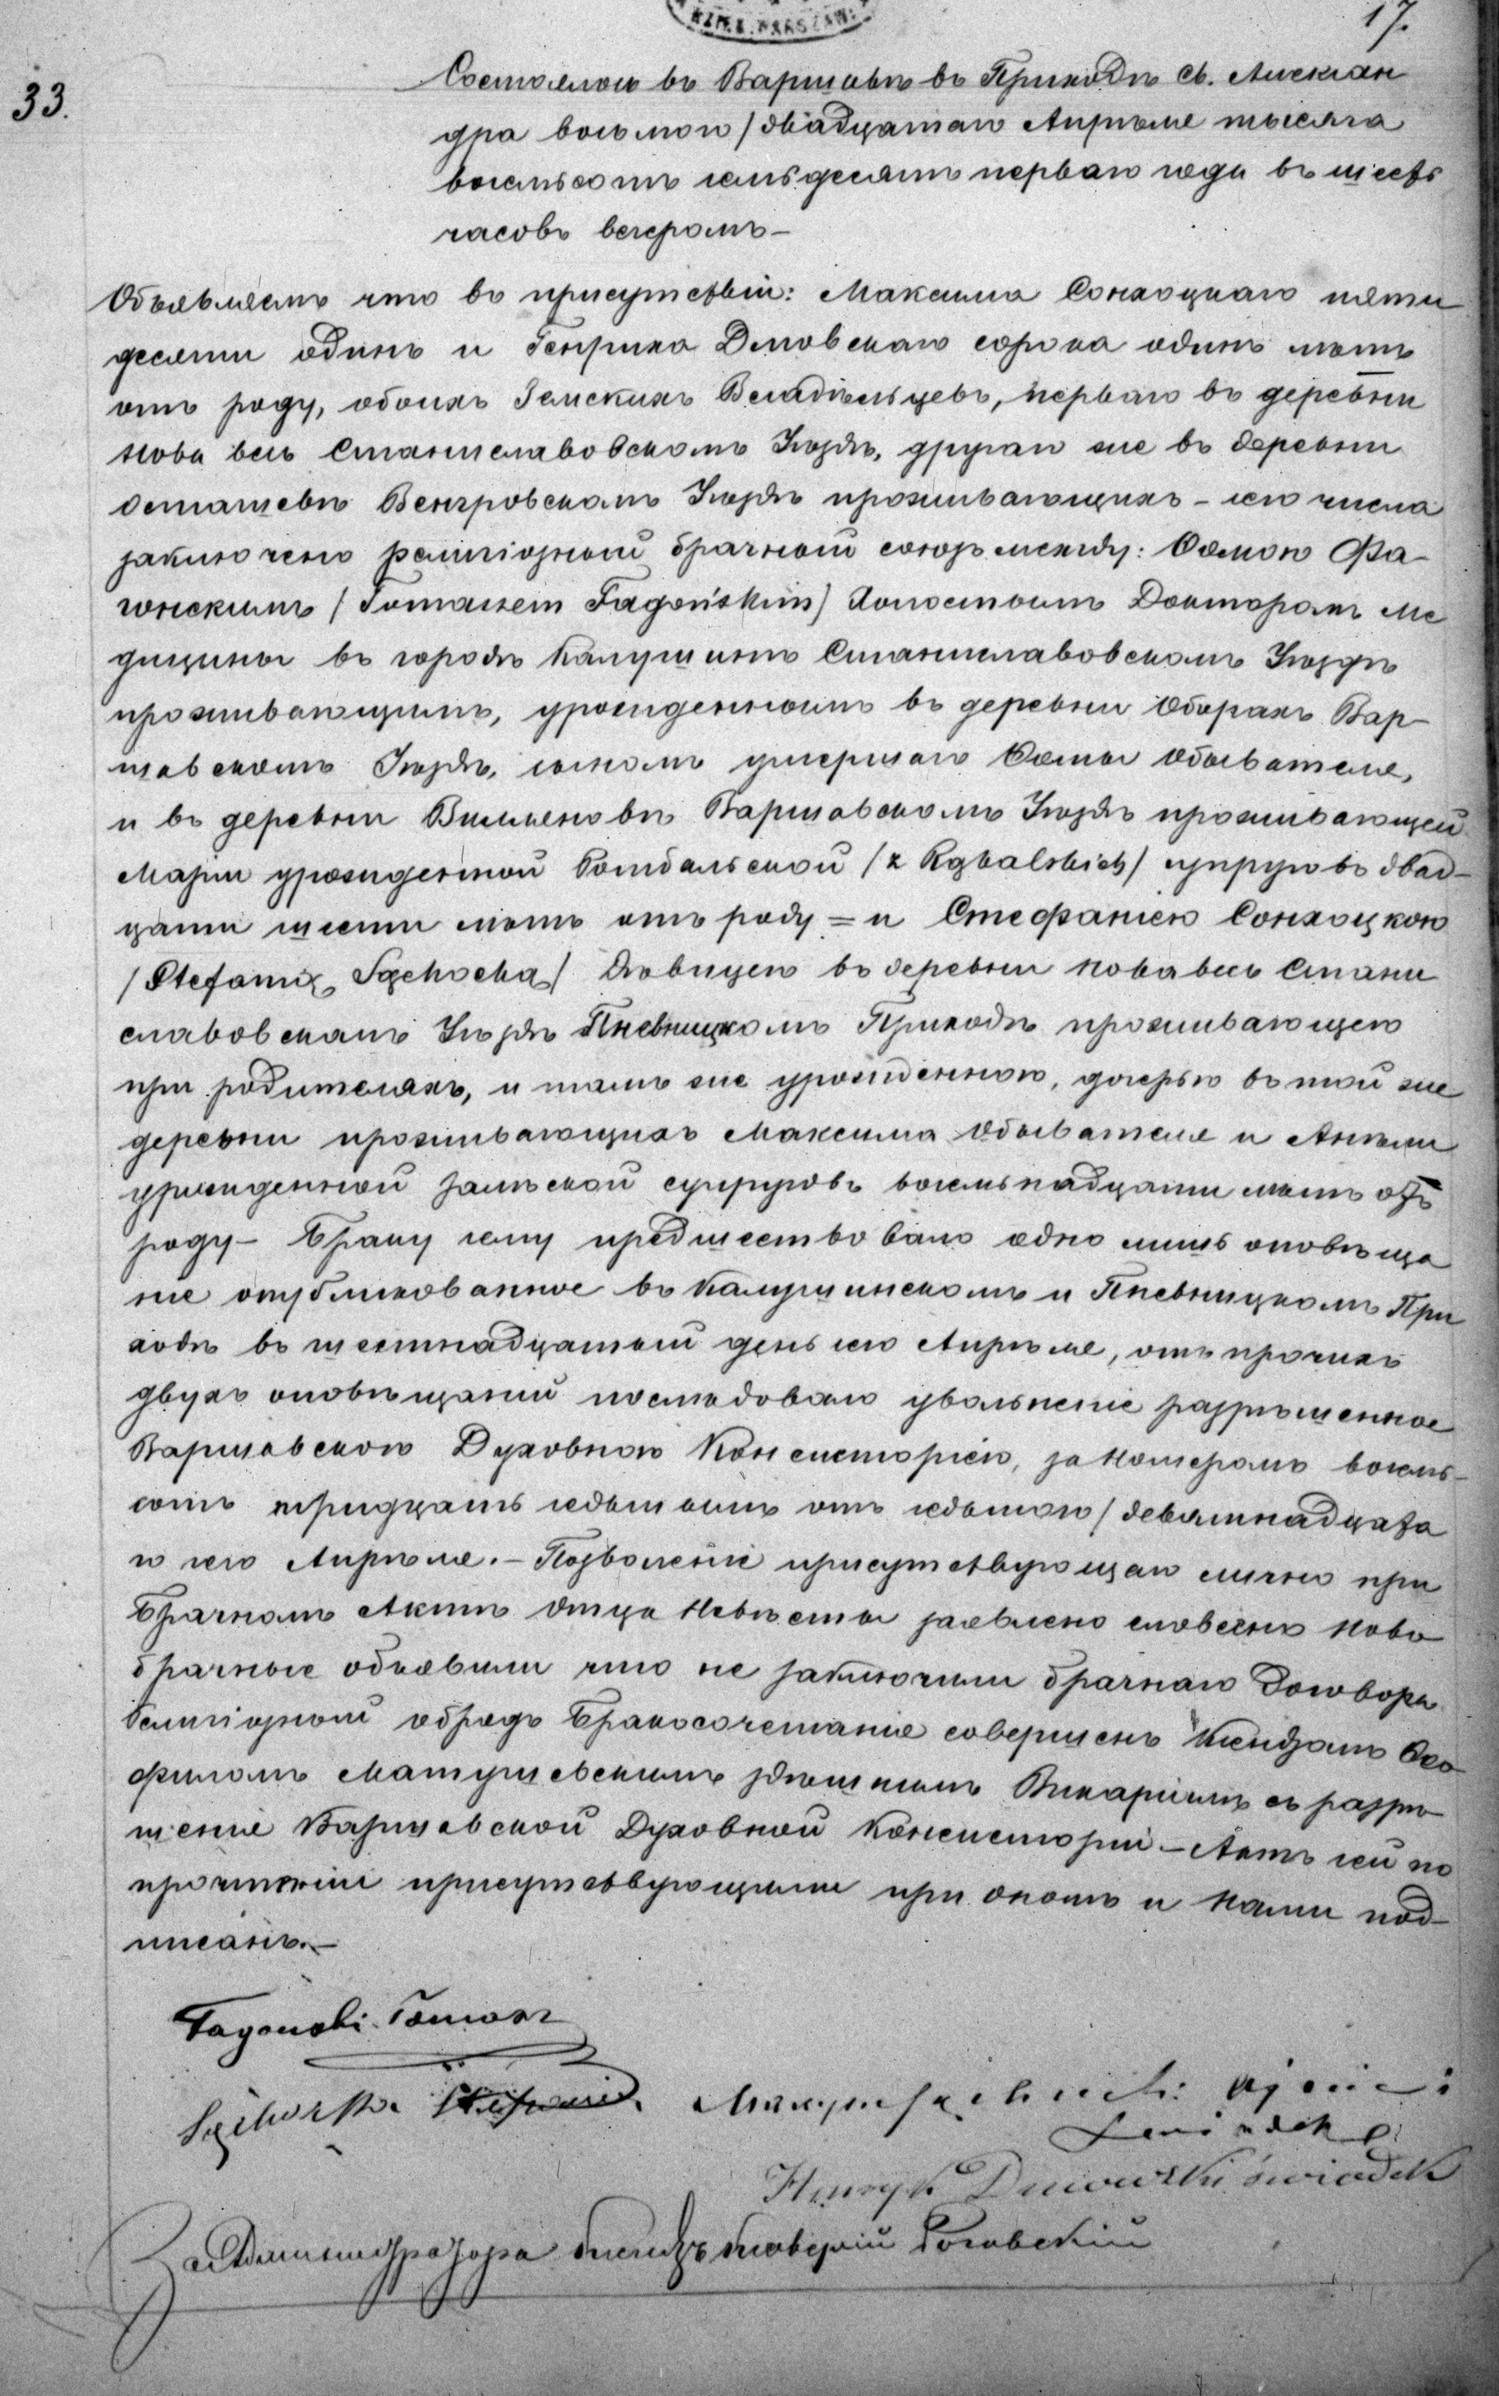 17.
33.
Состоялось въ Варшавѣ въ Приходѣ Св. Алексан
дра восьмого / двадцатаго Апрѣля тысяча
восемьсотъ семьдесятъ перваго года въ шесть
часовъ вечеромъ –
Объявляемъ что въ присутствіи: Максима Сонхоцкаго пяти
десяти одинъ и Генриха Дмовскаго сорока одинъ лѣтъ
отъ роду, обоихъ Земскихъ Владѣльцевъ, перваго въ деревни
Нова весь Станиславовскомъ Уѣздѣ, другаго же въ деревни
Осташевѣ Венгровскомъ Уѣздѣ проживающихъ – сего числа
заключенъ религіозный брачный союзъ между: Ѳомою Фа-
гонскимъ / Tomaszem Fagońskim / Холостымъ Докторомъ Ме
дицины въ городѣ Калушинѣ Станиславовскомъ Уѣздѣ
проживающимъ, урожденнымъ въ деревни Оборахъ Вар-
шавскомъ Уѣздѣ, сыномъ умершаго Ѳомы Обывателя,
и въ деревни Вилляновѣ Варшавскомъ Уѣздѣ проживающей
Маріи урожденной Ромбальской / z Rąbalskich / супруговъ двад-
цати шести лѣтъ отъ роду = и Стефаніею Сонхоцкою
/ Stefanią Sąchocką / Дѣвицею въ деревни Нова весь Стани
славовскомъ Уѣздѣ Пневницкомъ Приходѣ проживающею
при родителяхъ, и тамъ же урожденною, дочерью въ той же
деревни проживающихъ Максима Обывателя и Анѣли
урожденной Залѣской супруговъ восемьнадцати лѣтъ отъ
роду – Браку сему предшествовало одно лишь оповѣще
ніе опубликованное въ Калушинскомъ и Пневницкомъ При
ходѣ въ шестнадцатый день сего Апрѣля, отъ прочихъ
двухъ оповѣщаній послѣдовало увольненіе разрѣшенное
Варшавскою Духовною Консисторіею, за Номеромъ восемь-
сотъ тридцать седьмымъ отъ седьмого / девятнадцата
го сего Апрѣля. – Позволеніе присутствующаго лично при
Брачномъ Актѣ Отца Невѣсты заявлено словесно Ново
брачные объявили что не заключили брачнаго Договора
Религіозный обрядъ Бракосочетанія совершенъ Ксендзомъ Ѳео
филомъ Матушевскимъ здѣшнимъ Викаріемъ съ разрѣ
шенія Варшавской Духовной Консисторіи – Актъ сей по
прочтеніи присутствующими при ономъ и Нами под-
писанъ. –
Fagoński Tomasz
Sąchocka Stefania. Maxym Sąchocki ojciec i
świadek
Henryk Dmowski świadek
За Администратора Ксендзъ Роговскій